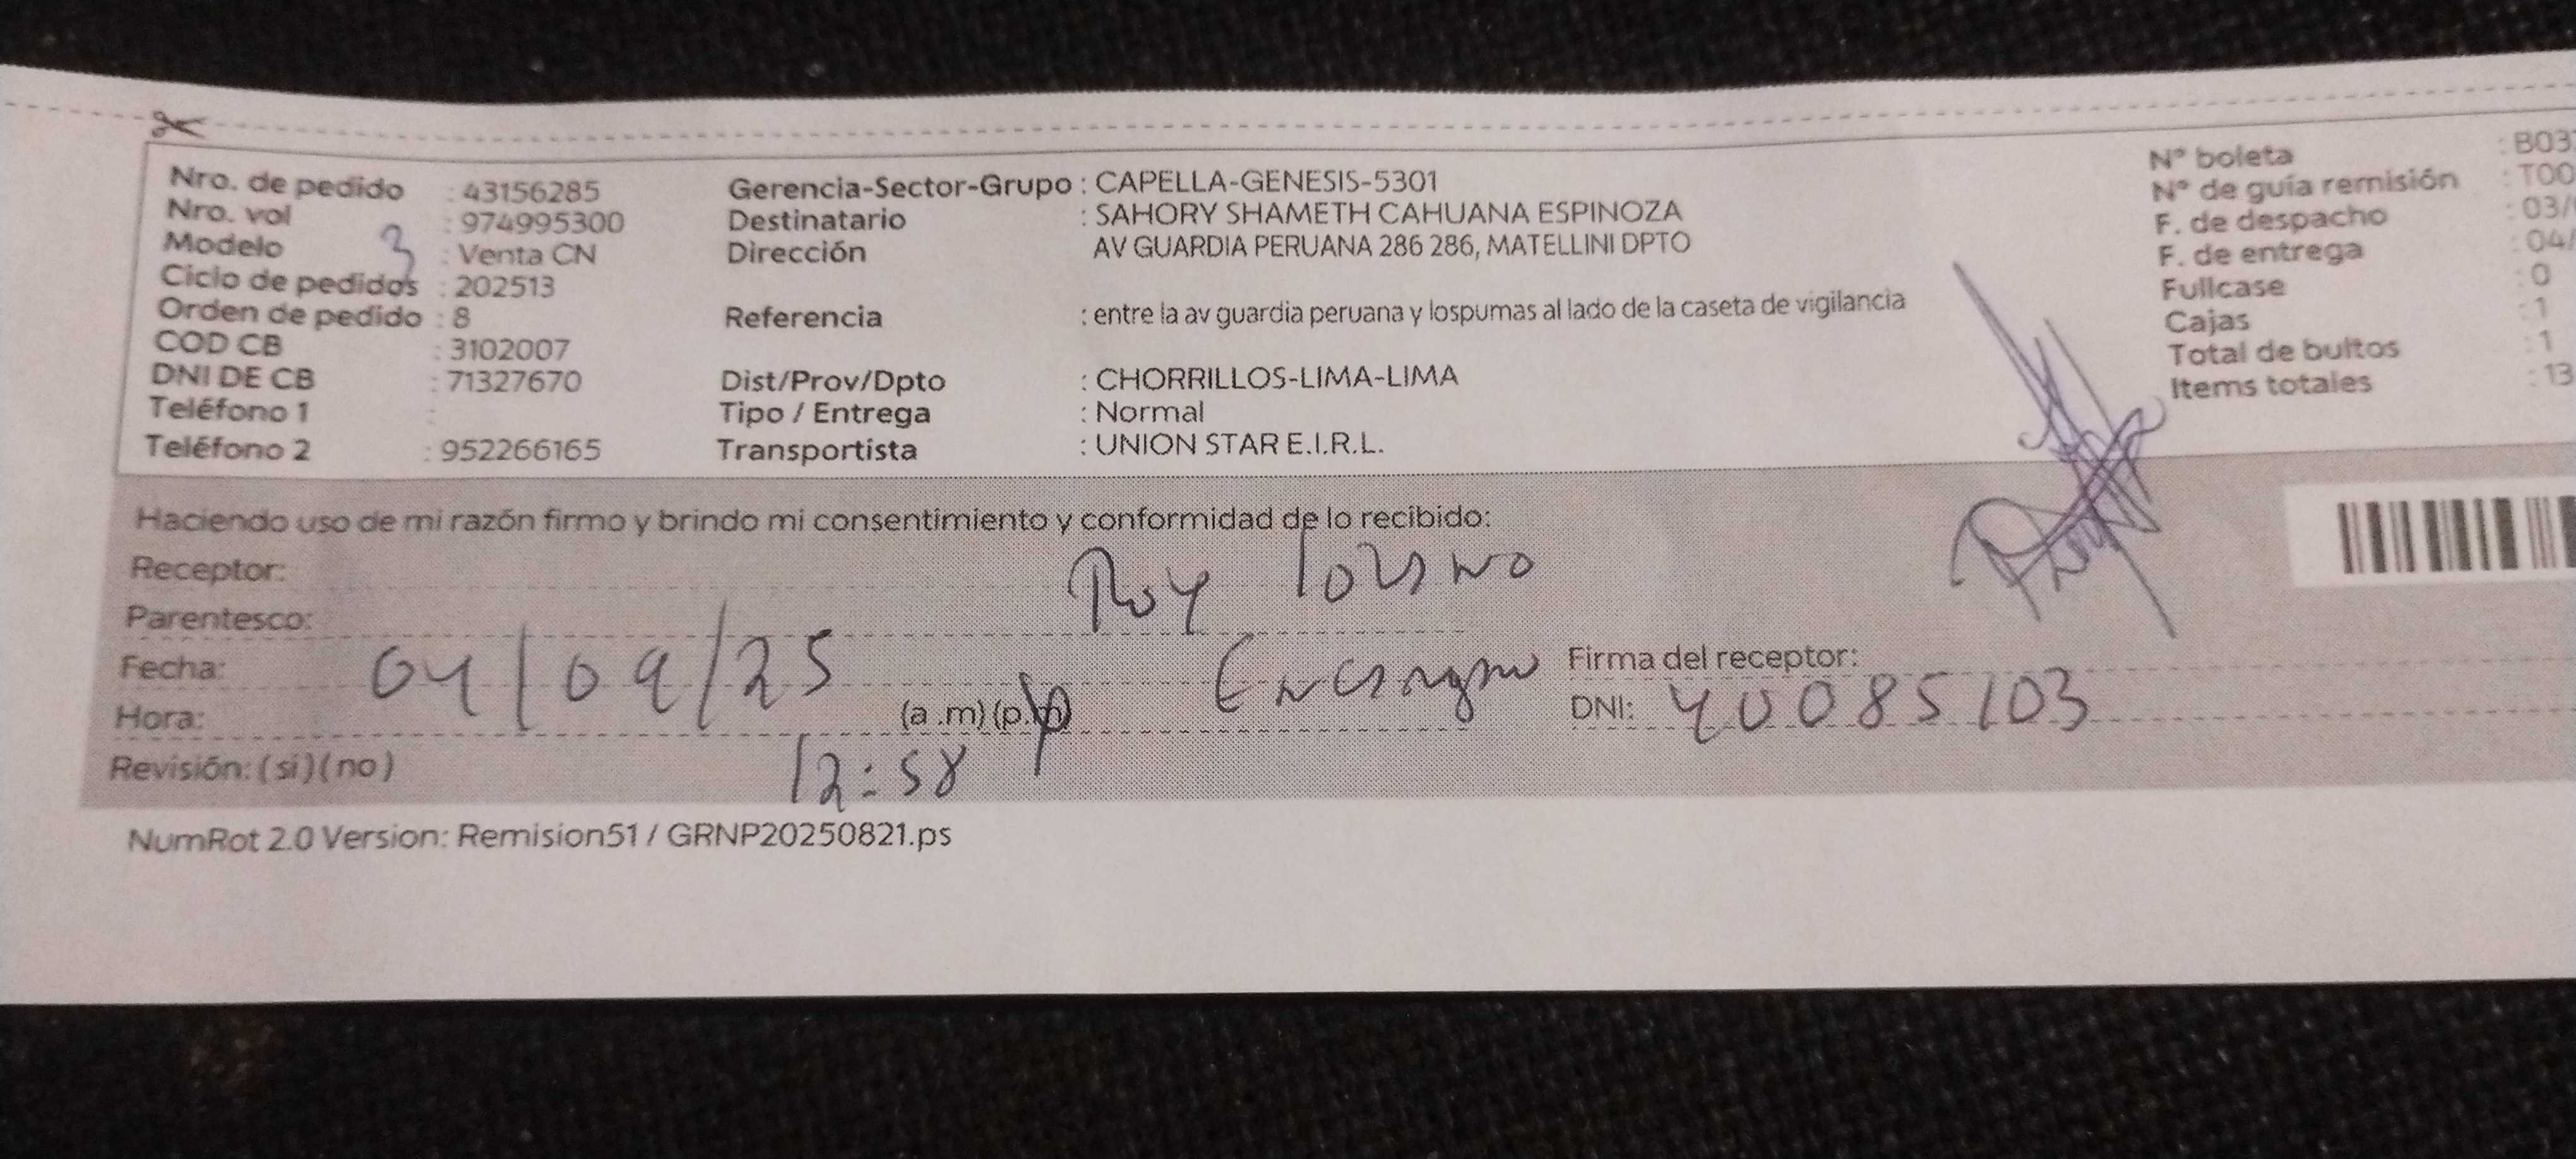 Nro. de pedido : 43156285
Nro. vol : 974995300
Modelo : Venta CN
3
Ciclo de pedidos : 202513
Orden de pedido : 8
COD CB : 3102007
DNI DE CB : 71327670
Teléfono 1 :
Teléfono 2 : 952266165
Gerencia-Sector-Grupo : CAPELLA-GENESIS-5301
Destinatario : SAHORY SHAMETH CAHUANA ESPINOZA
Dirección AV GUARDIA PERUANA 286 286, MATELLINI DPTO
Referencia : entre la av guardia peruana y lospumas al lado de la caseta de vigilancia
Dist/Prov/Dpto : CHORRILLOS-LIMA-LIMA
Tipo / Entrega : Normal
Transportista : UNION STAR E.I.R.L.
N° boleta : B03
N° de guía remisión : T00
F. de despacho : 03/
F. de entrega : 04/
Fullcase : 0
Cajas : 1
Total de bultos : 1
Items totales : 13
Haciendo uso de mi razón firmo y brindo mi consentimiento y conformidad de lo recibido:
Receptor: Roy
Parentesco:
Fecha: 04/09/25
Hora: (a .m) (p.m) 12:58
Firma del receptor:
DNI: 40085103
Revisión: (si) (no)
NumRot 2.0 Version: Remision51 / GRNP20250821.ps